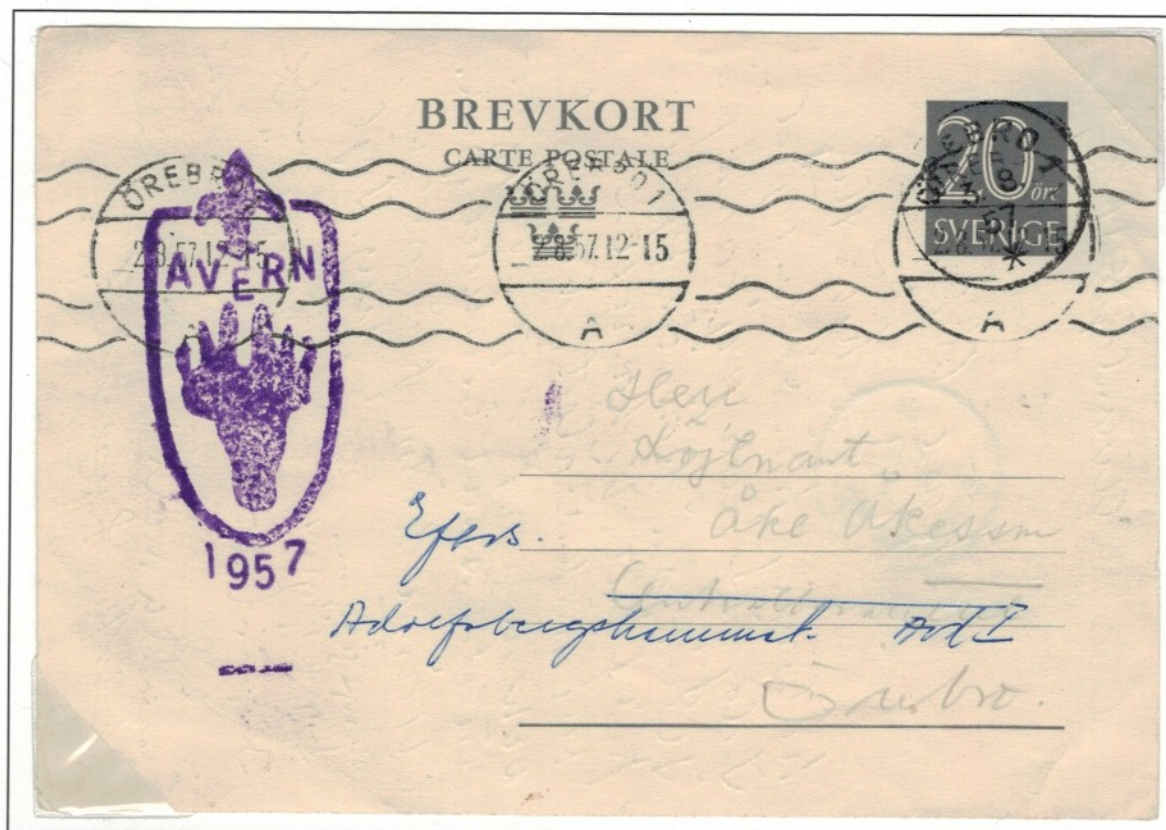 BREVKORT
CARTE POSTALE
20 öre
SVERIGE
ÖREBRO 1
2.8.57.12-15
A
ÖREBRO 1
2.8.57.12-15
A
ÖREBRO 1
3. 8
57
15
A
AVERN
1957
Herr
Löjtnant
Åke Åkesson
Efters.
Adolfsbergshemmet. Avd I
Örebro.